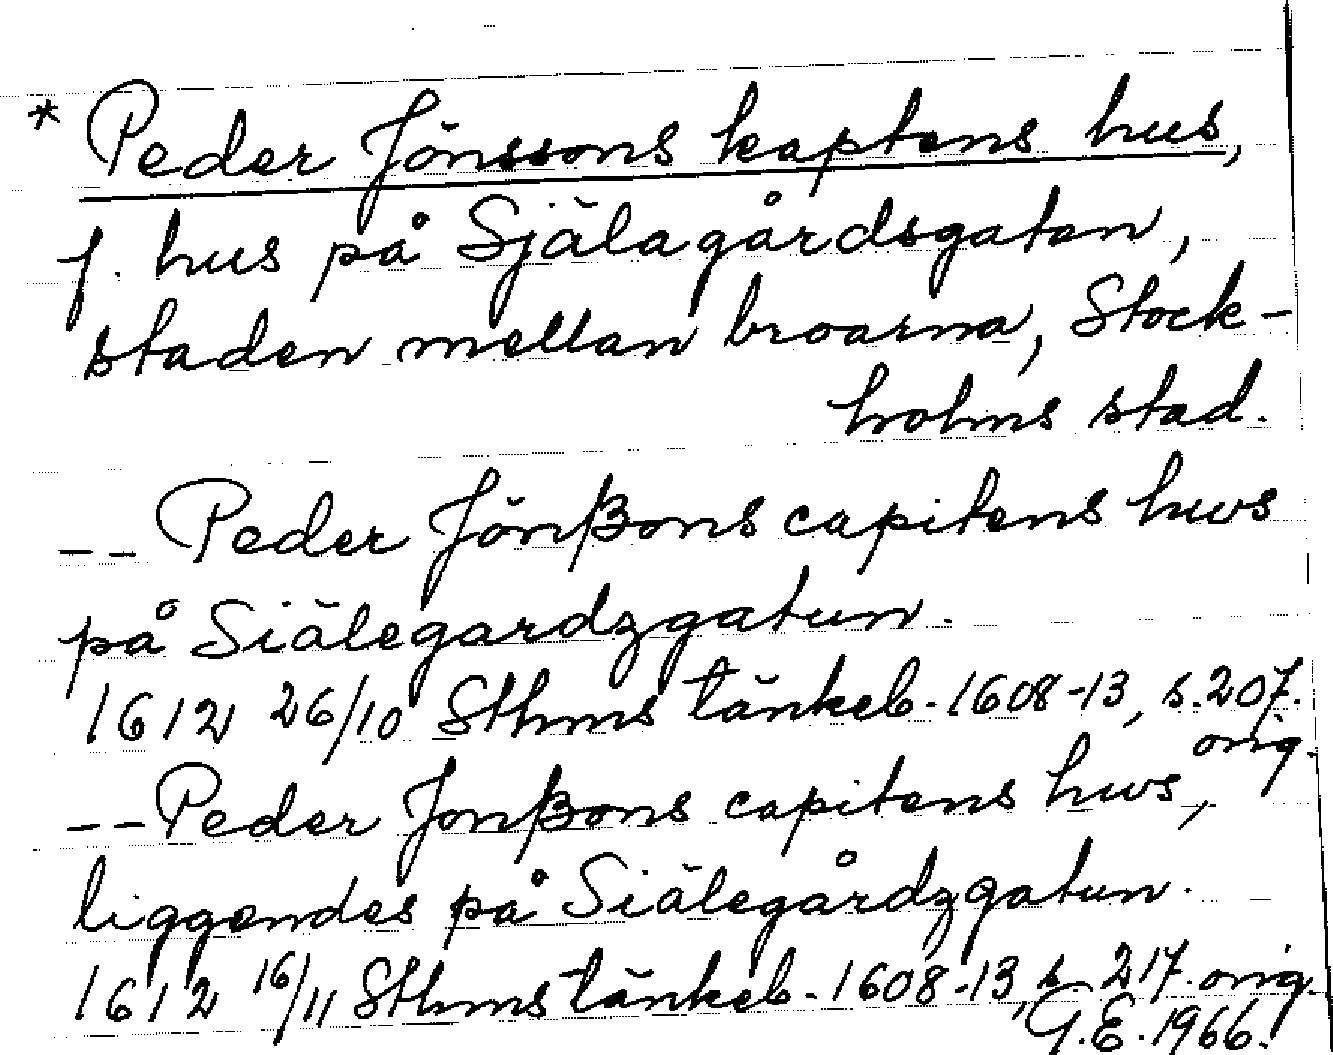 * Peder Jönssons kaptens hus,
f. hus på Själagårdsgatan,
staden mellan broarna, Stock-
holms stad.
-- Peder Jönßons capitens hws
på Siälegardzgatun.
1612 26/10 Sthms tänkeb. 1608-13, s. 207.
orig.
-- Peder Jonßons capitens hws,
liggendes på Siälegårdzgatun.
1612 16/11 Sthms tänkeb. 1608-13, s. 217. orig.
G.E. 1966.